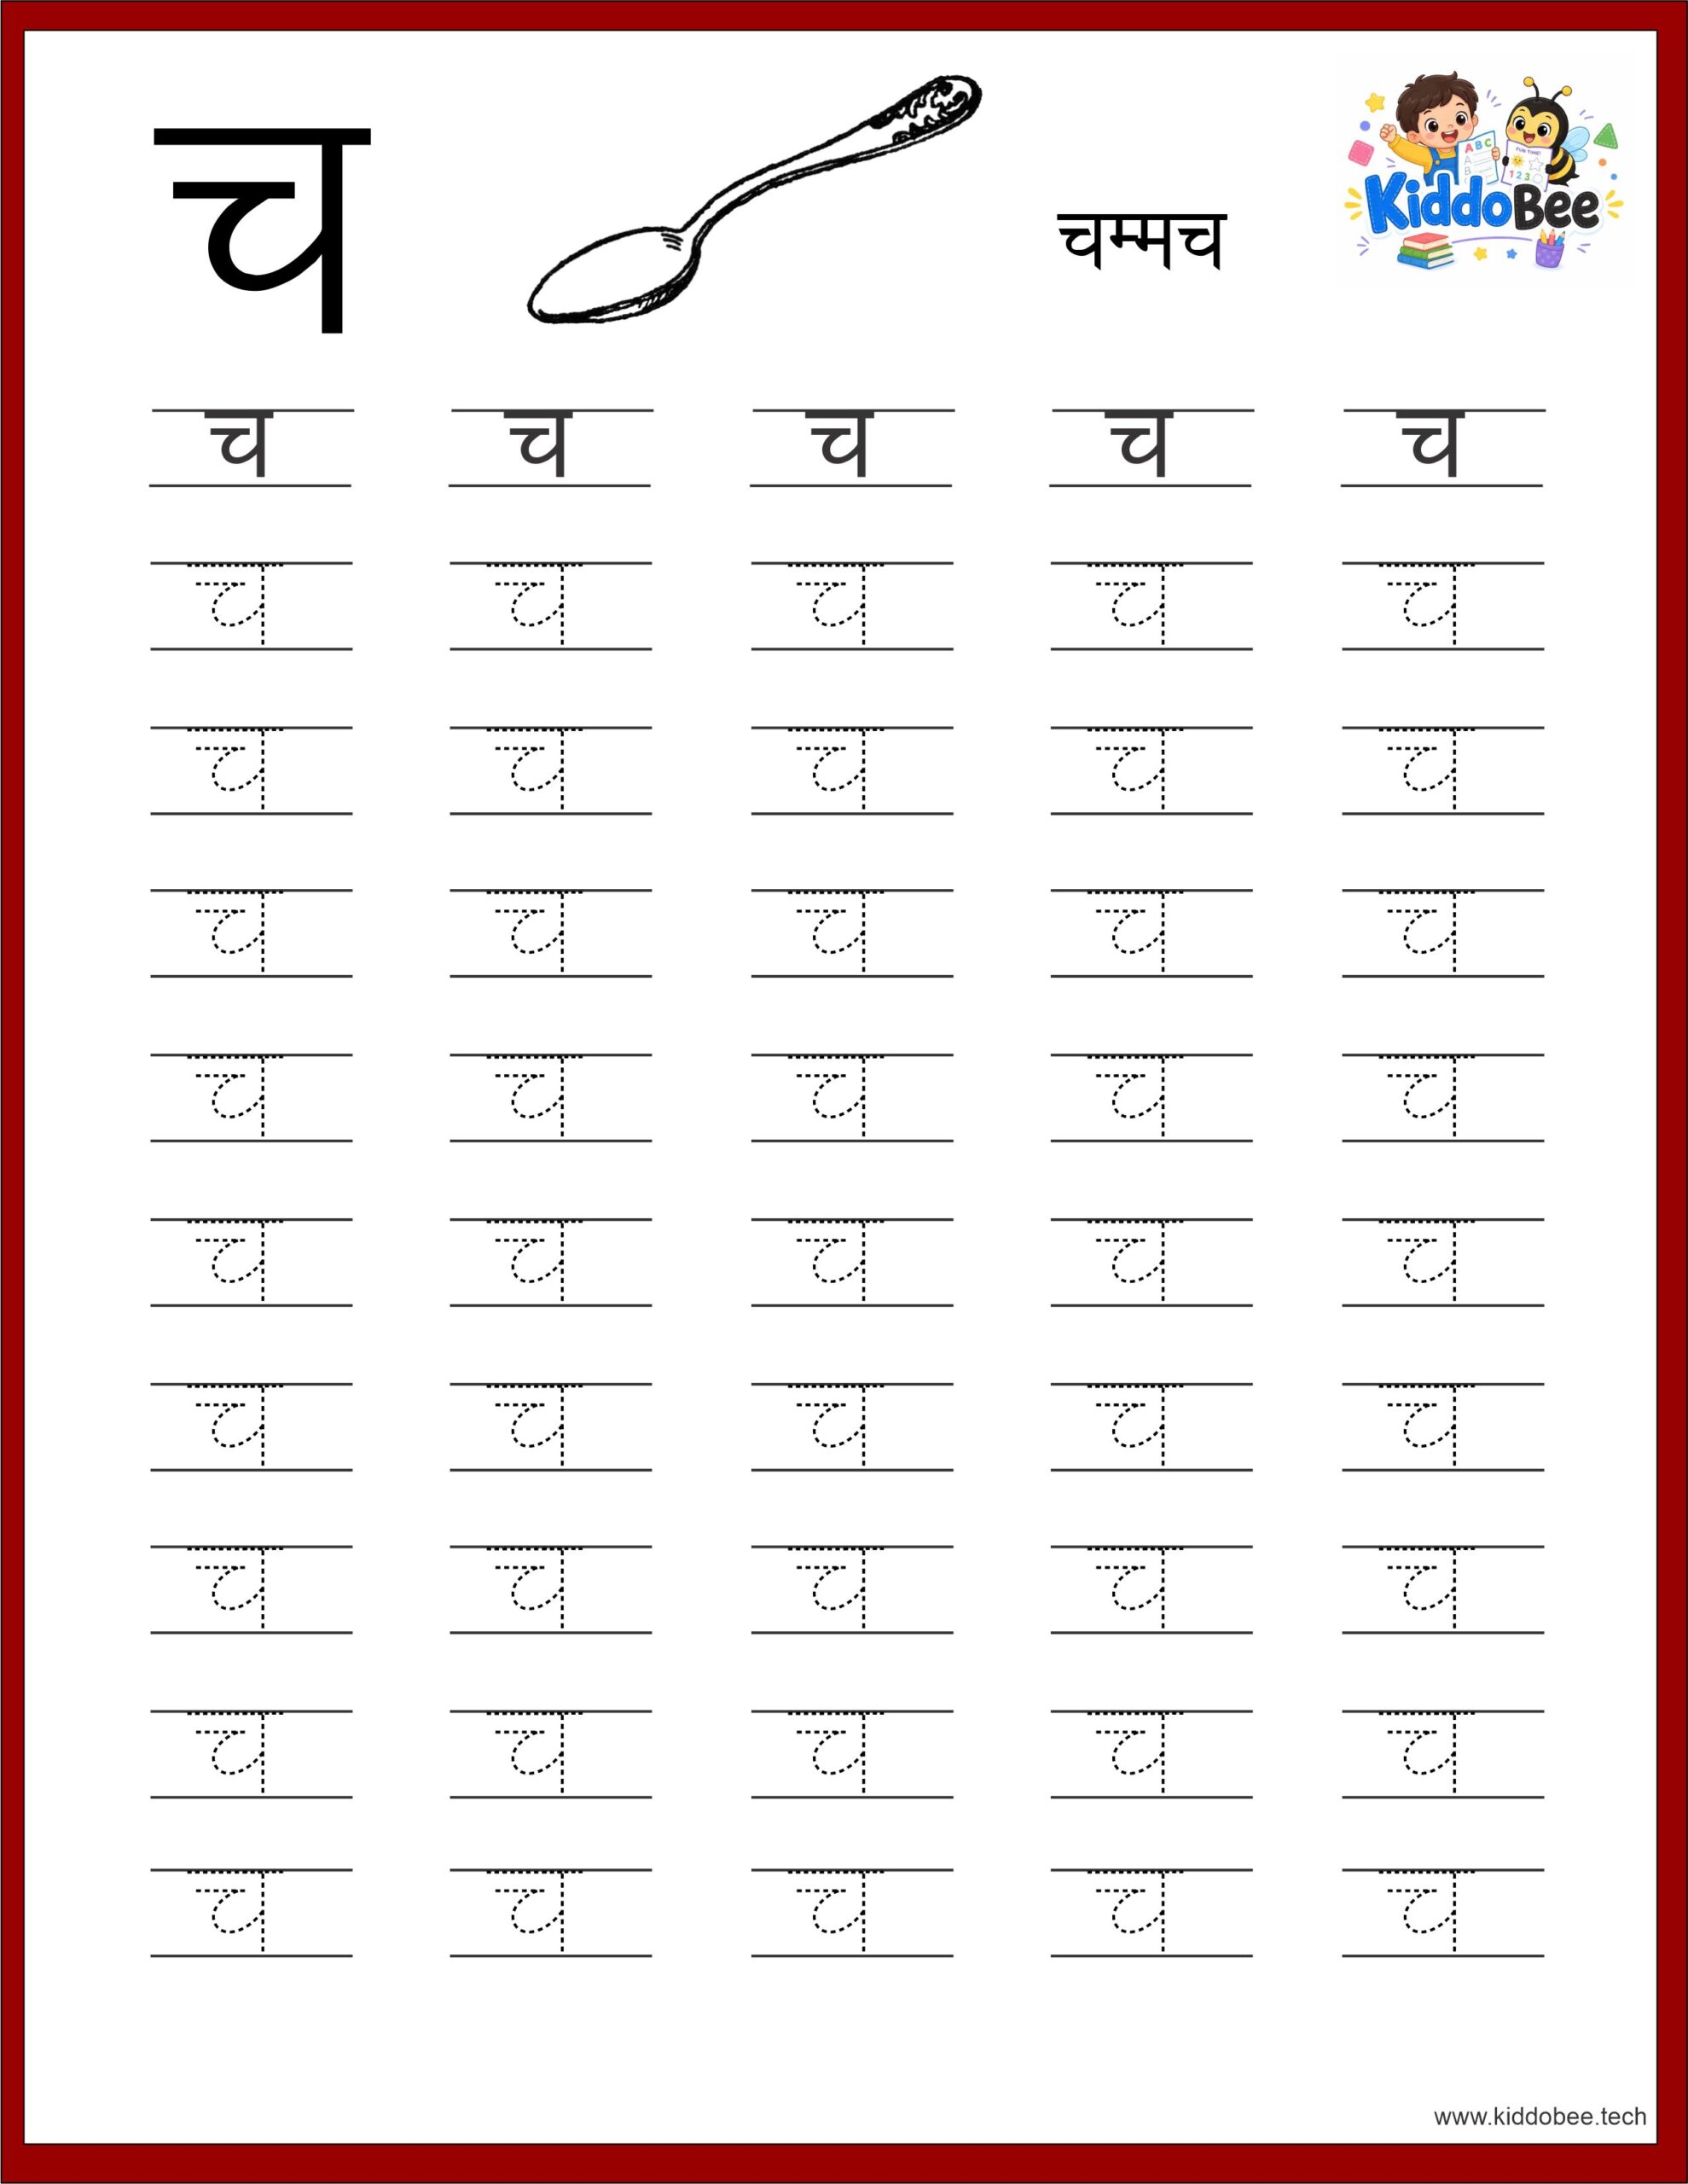 च
चम्मच
KiddoBee
ABC
A
B
FUN TIME!
123
च च च च च
च च च च च
च च च च च
च च च च च
च च च च च
च च च च च
च च च च च
च च च च च
च च च च च
च च च च च
www.kiddobee.tech